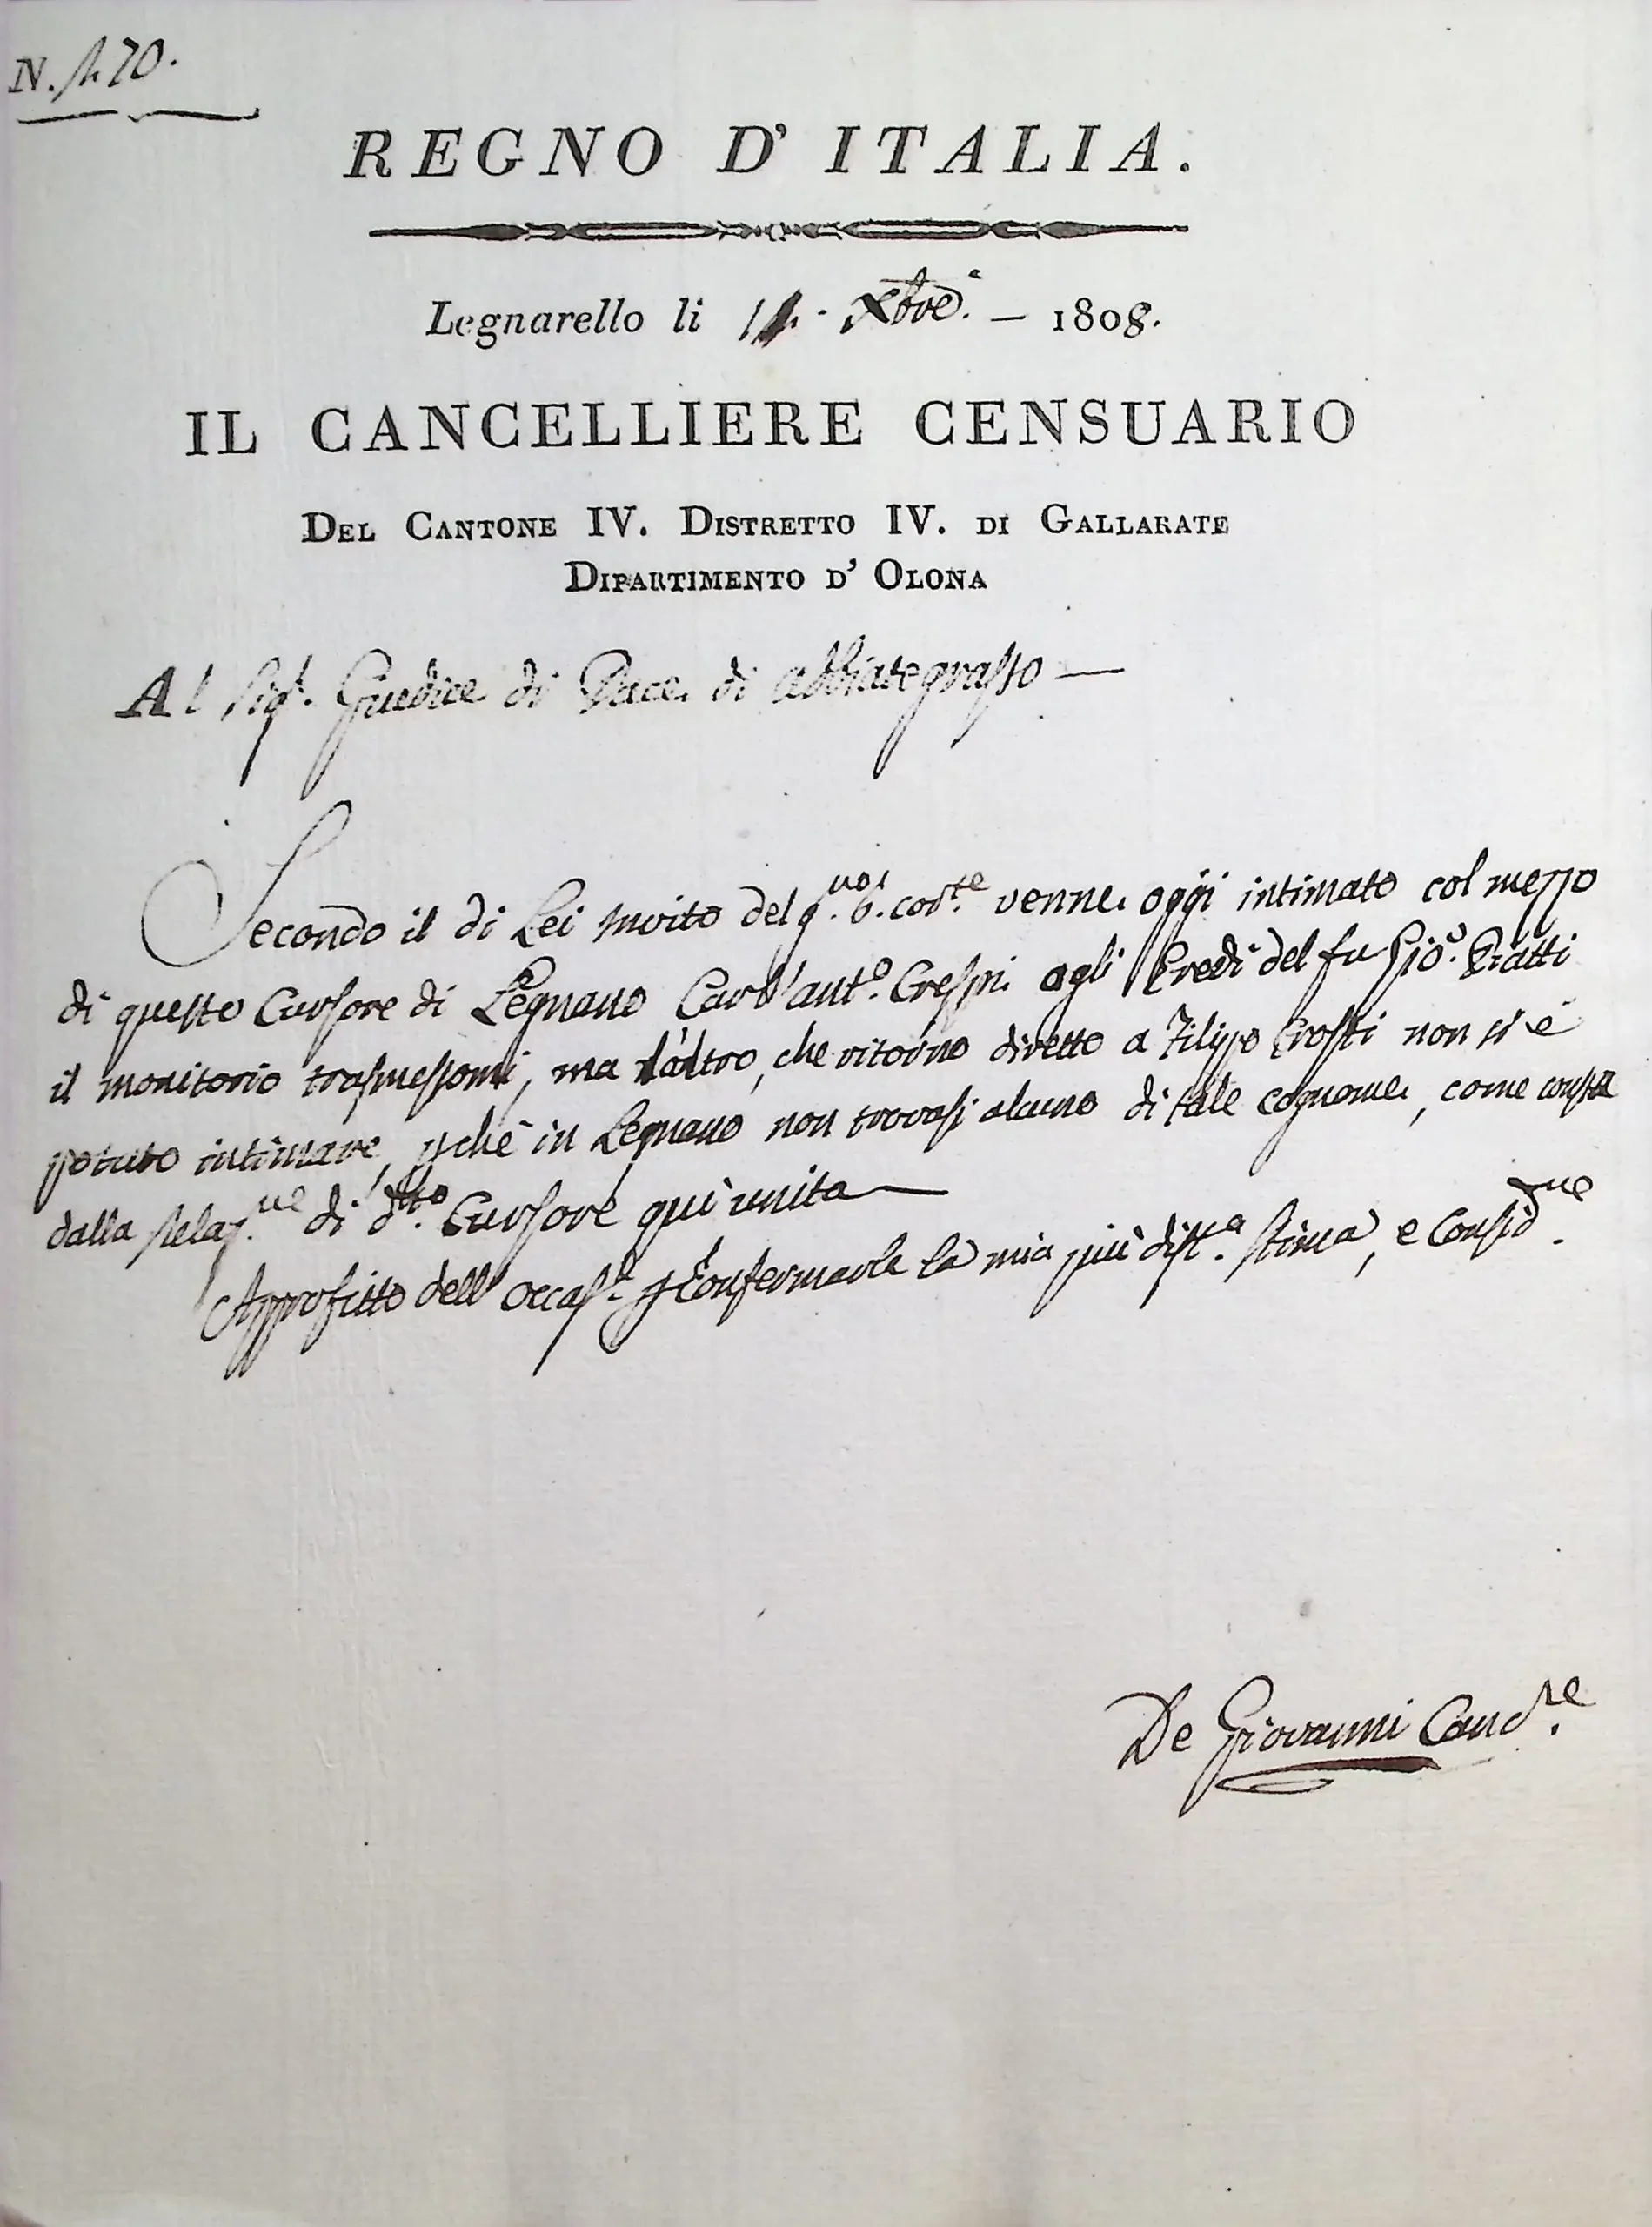 N. 470.
REGNO D' ITALIA.
Legnarello li Xbre. — 1808.
IL CANCELLIERE CENSUARIO
DEL CANTONE IV. DISTRETTO IV. DI GALLARATE
DIPARTIMENTO D' OLONA
Al Sigr. Giudice di Pace di Abbiategrasso —
Secondo il di Lei invito del g.no 6. corr.te venne oggi intimato col mezzo
di questo Cursore di Legnano Carl'Ant.o Crespi agli Eredi del fu Gio. Piatti
il monitorio trasmessomi, ma l'altro, che ritorno diretto a Filippo Crosti non si è
potuto intimare, pchè in Legnano non trovasi alcuno di tale cognome, come consta
dalla relaz.ne di d.to Cursore quì unita —
Approfitto dell' occas.e p Confermarle la mia più dist.a stima, e Consid.ne
De Giovanni Canc.re